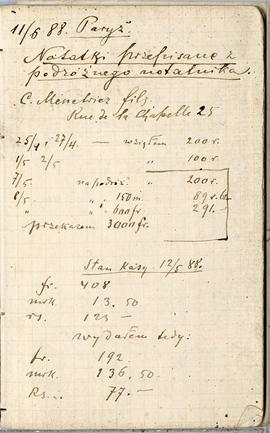 11/5 88. Paryż.
Notatki przepisane z
podróżnego notatnika.
C. Menetriez fils
Rue de la Chapelle 25
25/4 i 27/4 — wziąłem 200 r.
1/5 2/5 " 100 r.
7/5 na podróż " 200 r.
8/5 " , 150 m. 89 r.
" " 600 fr 291.-
przekazem 3000 fr.
Stan Kasy 12/5 88.
fr. 408
mrk 13.50
rs. 123 —
wydałem tedy:
fr. 192
mrk. 136.50
Rs... 77.—